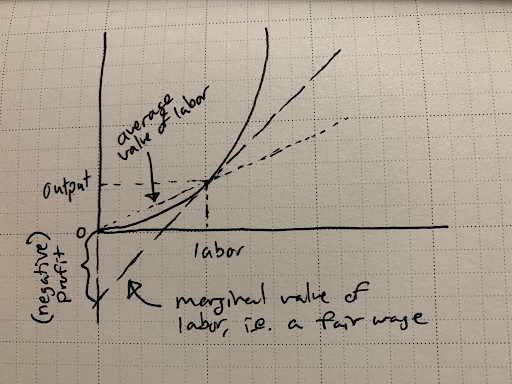 average
value of labor
output
0
labor
(negative)
profit
marginal value of
labor, i.e. a fair wage